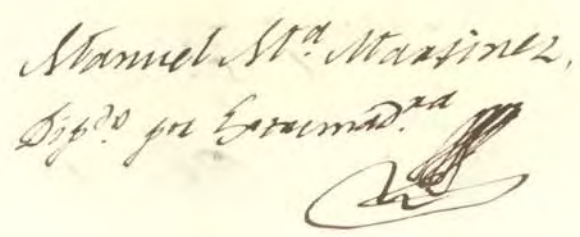 Manuel M.ª Martinez,
Dip.do por Extremad.ra